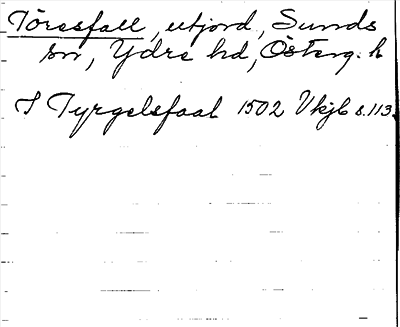 Töresfall, utjord, Sunds
sn, Ydre hd, Österg. l.
I Tyrgelsfaal 1502 Vkjb s. 113.